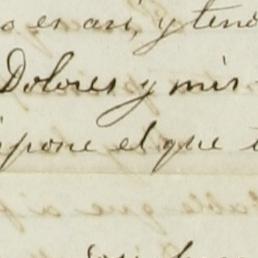 o es así, y tend
Dolores y mis
ipone el que t